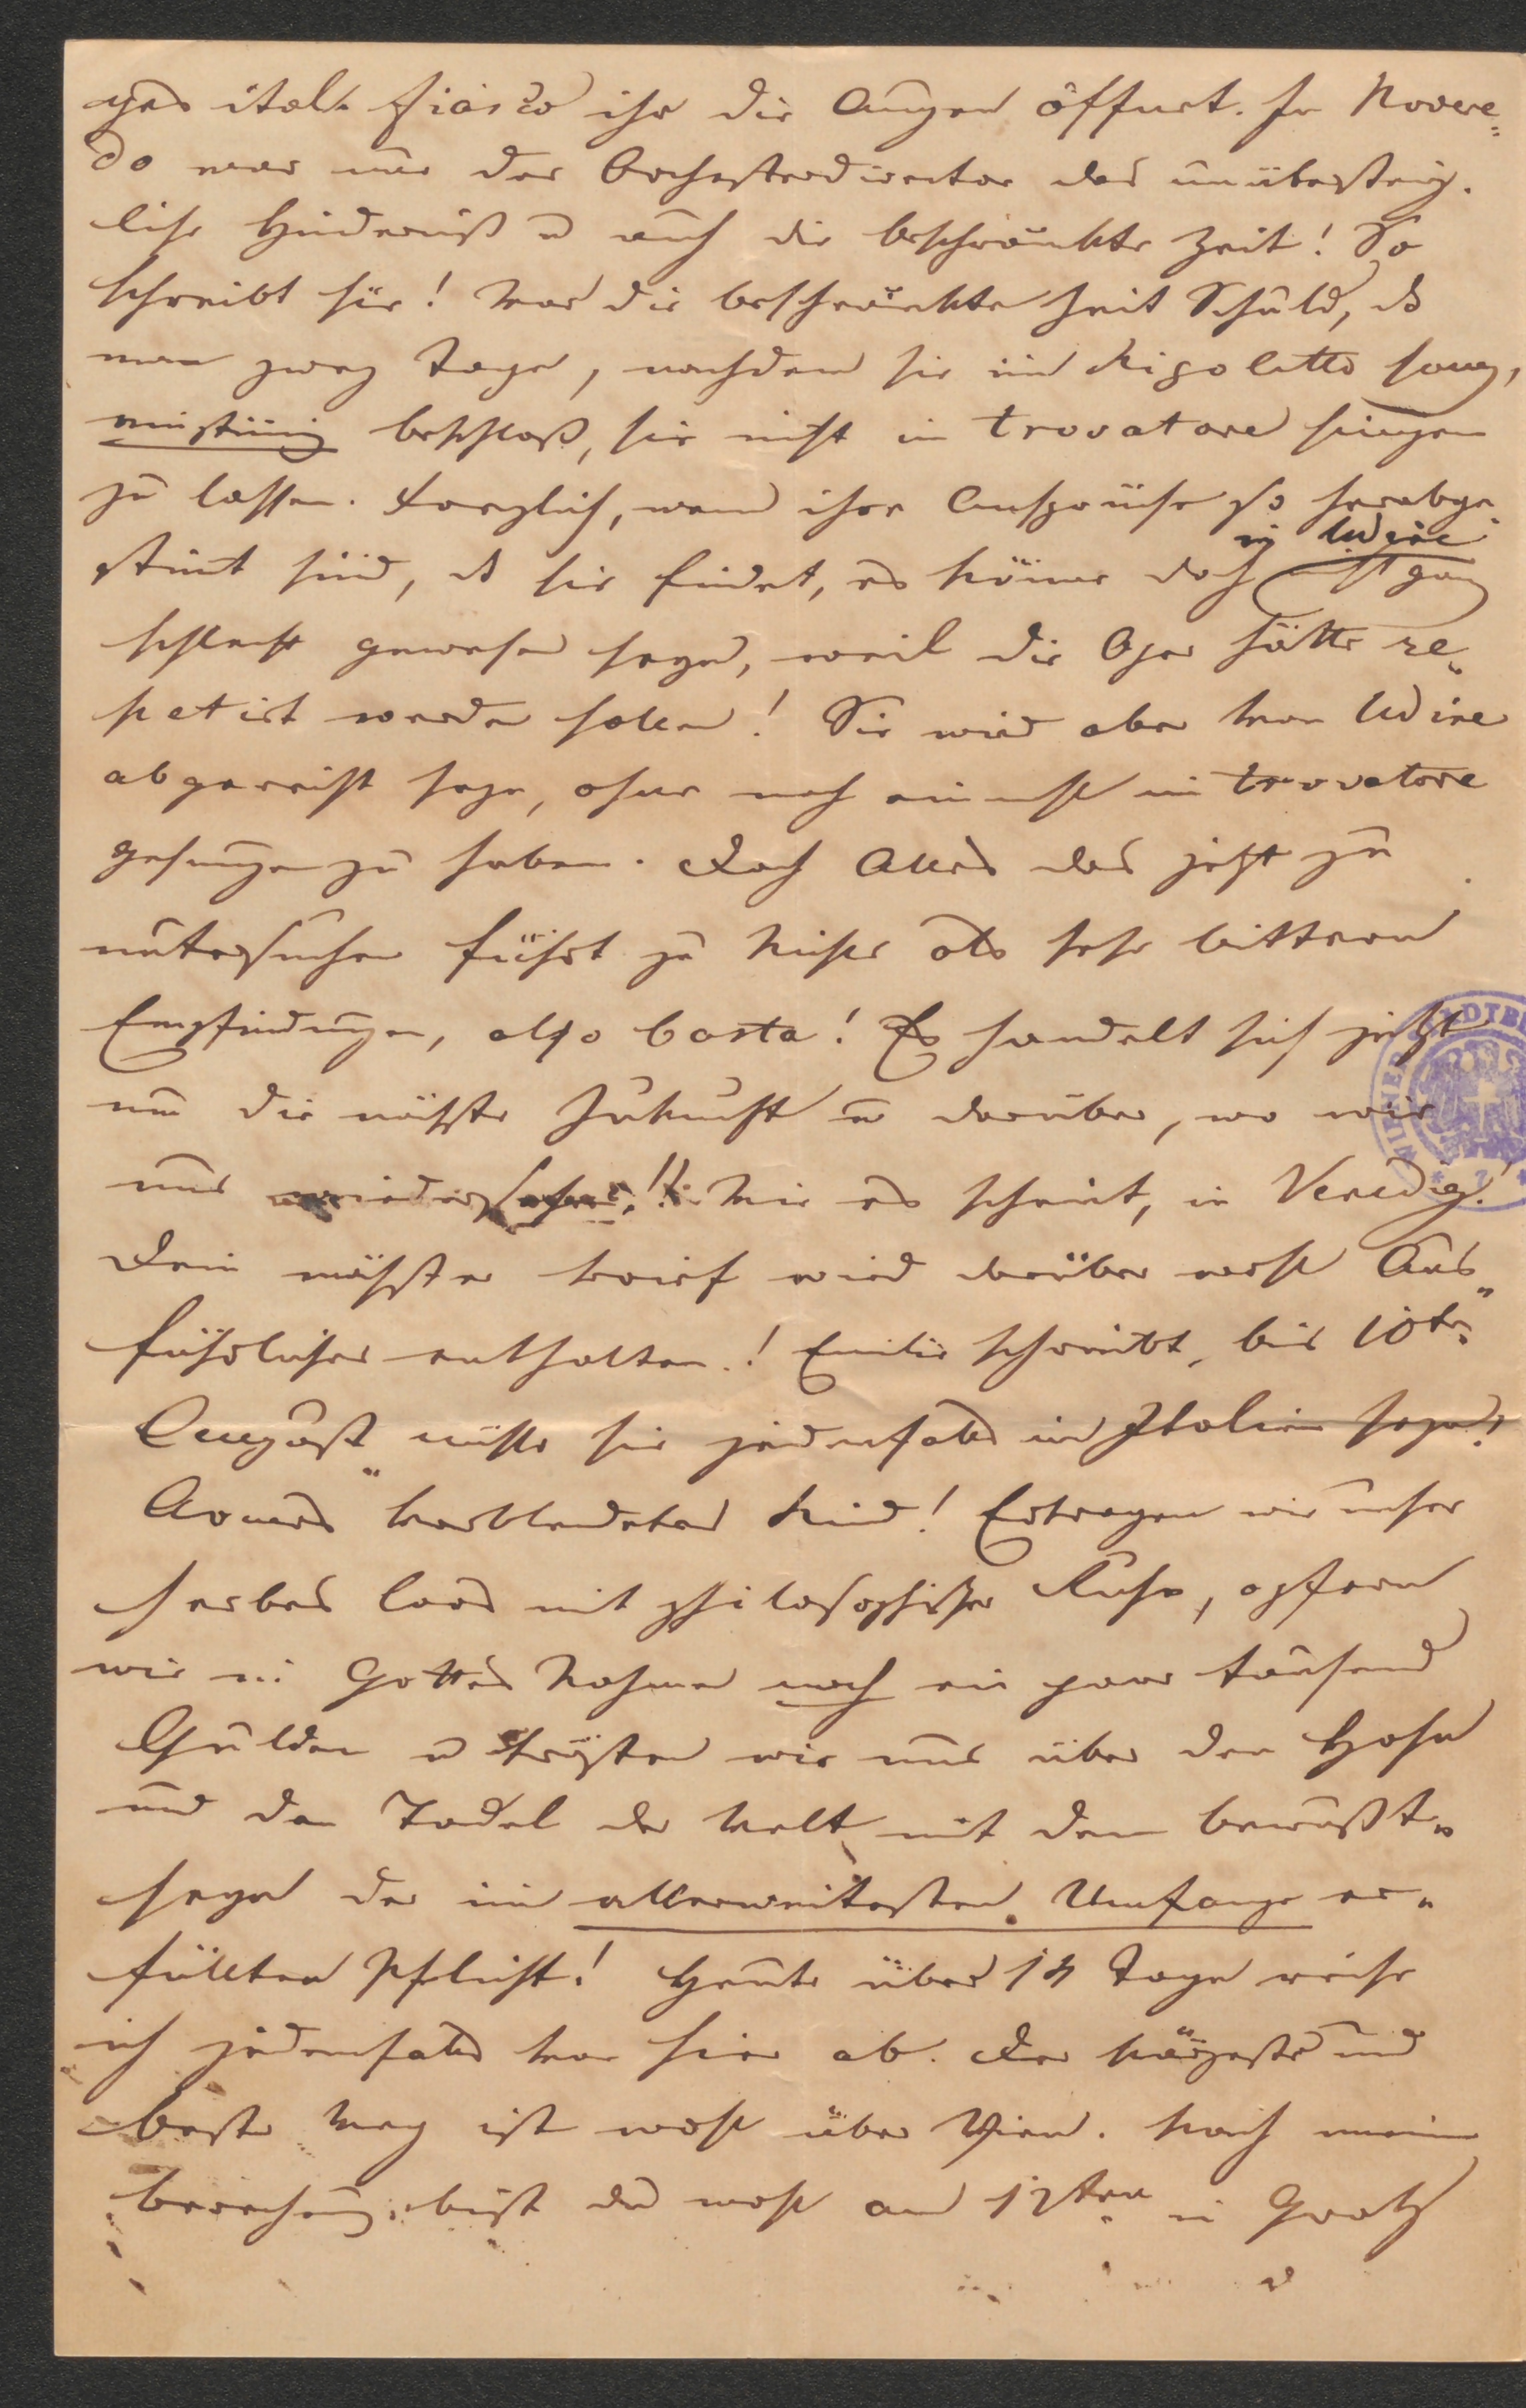 ges ital. Fiasco ihr die Augen öffnet. In Rovere=
do war nur der Orchesterdirector das unübersteig.
liche Hinderniß u auch die beschränkte Zeit! So
schreibt sie! War die beschränkte Zeit Schuld, dß
man zwey Tage, nachdem sie im Rigoletto sang,
einstimig beschloß, sie nicht im trovatore singen
zu lassen. Traurig, wenn ihre Ansprüche so herabge
stimt sind, dß sie findet, es könne doch in Udine nicht ganz
schlecht gewesen seyn, weil die Oper hätte re„
petirt werden sollen! Sie wird aber von Udine
abgereist seyn, ohne noch einmal im trovatore
gesungen zu haben. Doch Alles das jetzt zu
untersuchen führt zu Nichts als sehr bittern
Empfindungen, also basta! Es handelt sich jetzt
um die nächste Zukunft u darüber, wo wir
uns wiedersehen!! Wie es scheint, in Venedig!
Dein nächster Brief wird darüber wohl Aus„
führliches enthalten! Emilie schreibt, bis 10ten
August müsse sie jedenfalls in Italien seyn!
Armes verblendetes Kind! Ertragen wir unser
herbes Loos mit philosophischer Ruhe, opfern
wir in Gottes Nahmen noch ein paar tausend
Gulden u trösten wir uns über den Hohn
und den Tadel der Welt mit dem Bewußt„
seyn der im allerweitesten Umfange er„
füllten Pflicht! Heute über 14 Tage reise
ich jedenfalls von hier ab. Der kürzeste und
beste Weg ist wohl über Wien. Nach meiner
Berechnung bist du wohl am 12ten in Gratz